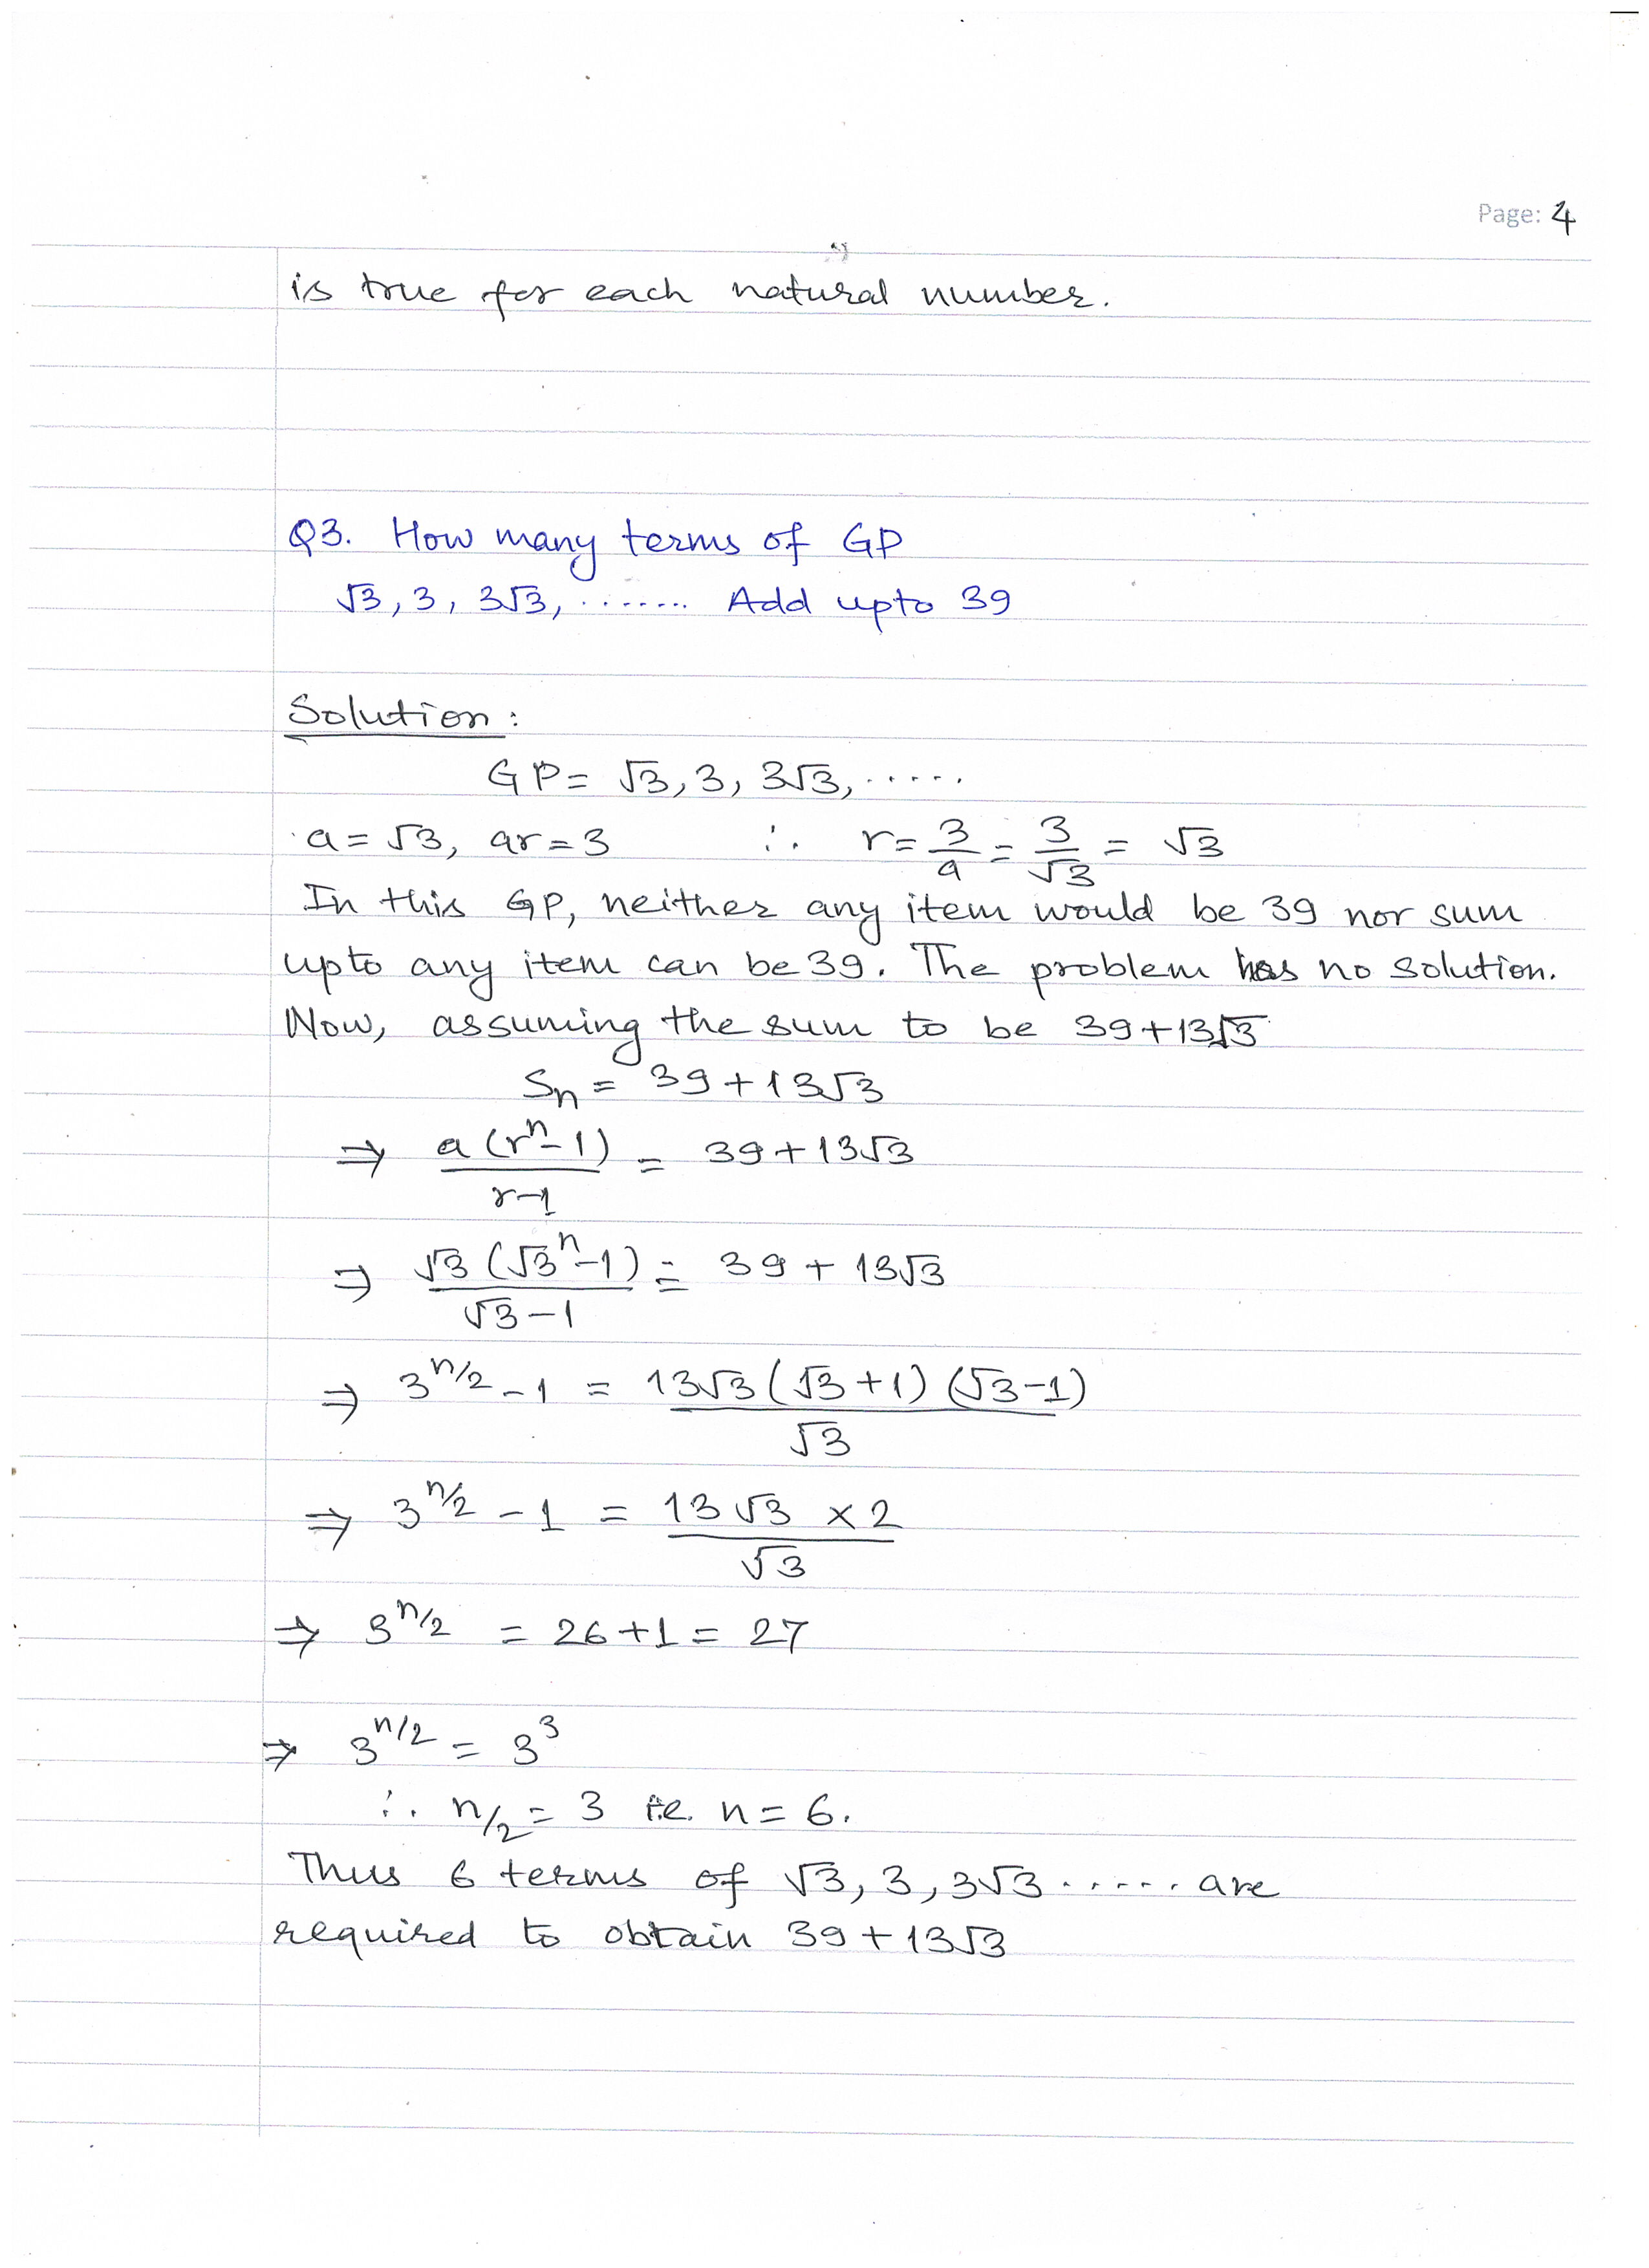 Page: 4
is true for each natural number.
Q3. How many terms of GP
√3, 3, 3√3, ....... Add upto 39
Solution:
GP = √3, 3, 3√3, .....
a = √3, ar = 3 ∴ r = 3/a = 3/√3 = √3
In this GP, neither any item would be 39 nor sum
upto any item can be 39. The problem has no solution.
Now, assuming the sum to be 39 + 13√3
Sn = 39 + 13√3
⇒ a(rⁿ - 1)/(r - 1) = 39 + 13√3
⇒ √3(√3ⁿ - 1)/(√3 - 1) = 39 + 13√3
⇒ 3^(n/2) - 1 = 13√3(√3 + 1)(√3 - 1)/√3
⇒ 3^(n/2) - 1 = 13√3 × 2/√3
⇒ 3^(n/2) = 26 + 1 = 27
⇒ 3^(n/2) = 3³
∴ n/2 = 3 i.e. n = 6.
Thus 6 terms of √3, 3, 3√3 ..... are
required to obtain 39 + 13√3